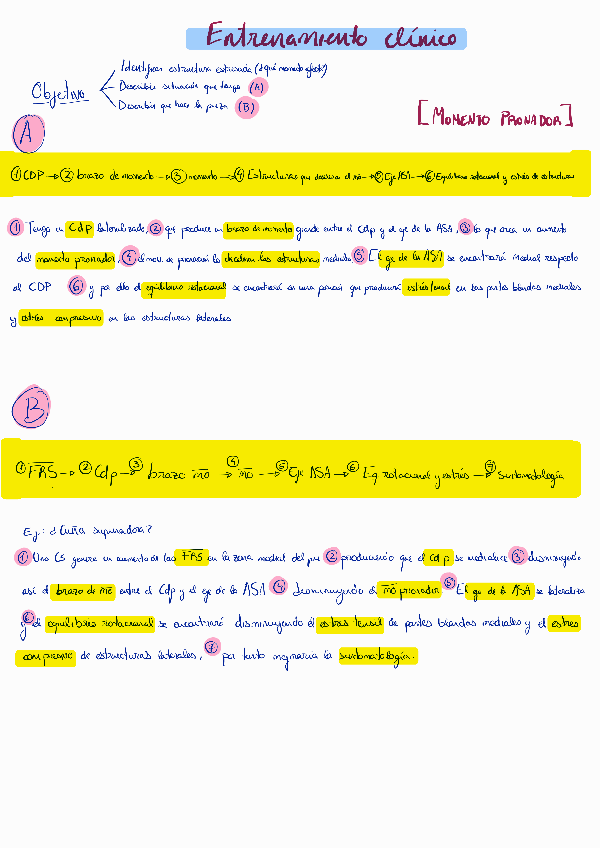 Entrenamiento clínico
Objetivo
Identificar estructura estresada (¿qué momento afecta?)
Describir situación que tengo (A)
Describir que hace la pieza (B)
[MOMENTO PRONADOR]
A
① CDP → ② brazo de momento → ③ momento → ④ Estructuras que deceleran el mo → ⑤ Eje ASA → ⑥ Equilibrio rotacional y estrés de estructuras
① Tengo un CdP lateralizado, ② que produce un brazo de momento grande entre el Cdp y el eje de la ASA, ③ lo que crea un aumento
del momento pronador, ④ el mov. de pronación lo deceleran las estructuras mediales ⑤ El eje de la ASA se encontrará medial respecto
al CDP ⑥ y por ello el equilibrio rotacional se encontrará en una posición que producirá estrés tensil en las partes blandas mediales
y estrés compresivo en las estructuras laterales
B
① FRS → ② Cdp → ③ brazo mo → ④ mo → ⑤ Eje ASA → ⑥ Eq rotacional y estrés → ⑦ sintomatología
Ej: ¿Cuña supinadora?
① Una CS genera un aumento de las FRS en la zona medial del pie ② produciendo que el cdp se medialice ③ disminuyendo
así el brazo de mo entre el Cdp y el eje de la ASA ④ disminuyendo el mo pronador ⑤ El eje de la ASA se lateraliza
y ⑥ el equilibrio rotacional se encontrará disminuyendo el estrés tensil de partes blandas mediales y el estres
compresivo de estructuras laterales, ⑦ por tanto mejoraría la sintomatología.